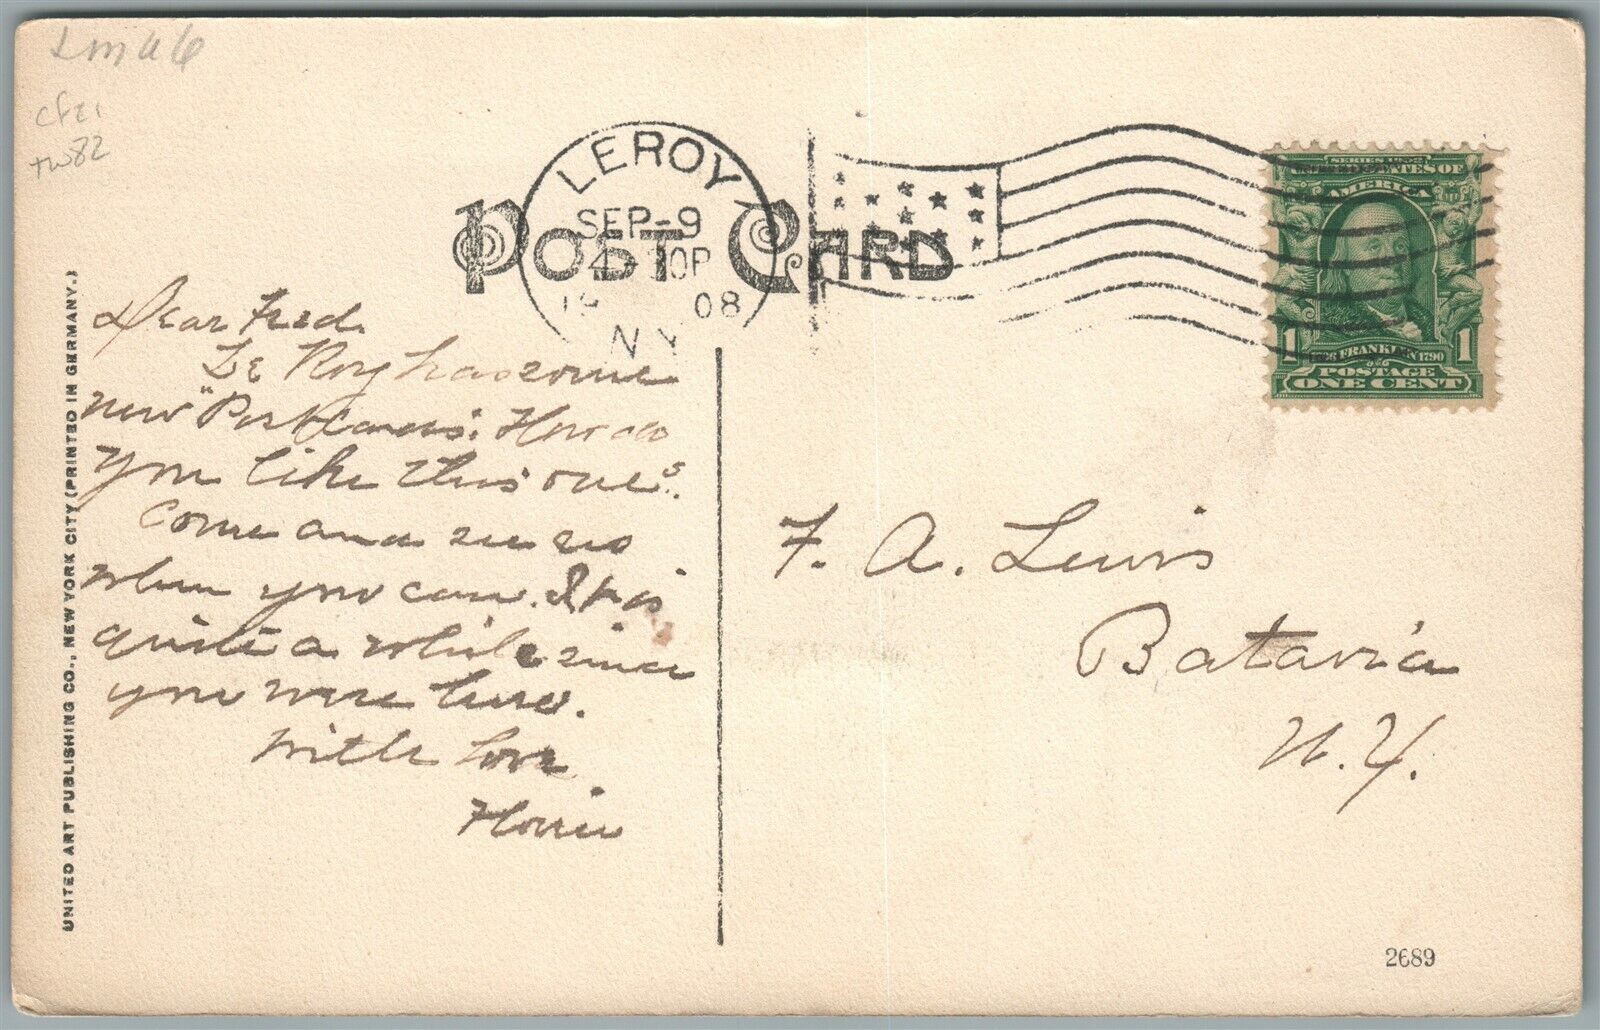 LEROY
SEP-9
4-30P
1908
N.Y.
POST CARD
SERIES 1902
UNITED STATES OF
AMERICA
1 1
1706 FRANKLIN 1790
POSTAGE
ONE CENT
UNITED ART PUBLISHING CO., NEW YORK CITY (PRINTED IN GERMANY.)
tw82
Dear Fred.
Le Roy has some
new "Postcards". How do
you like this one?
Come and see us
when you can. It is
quite a while since
you were here.
With love
F. A. Lewis
Batavia
N. Y.
2689